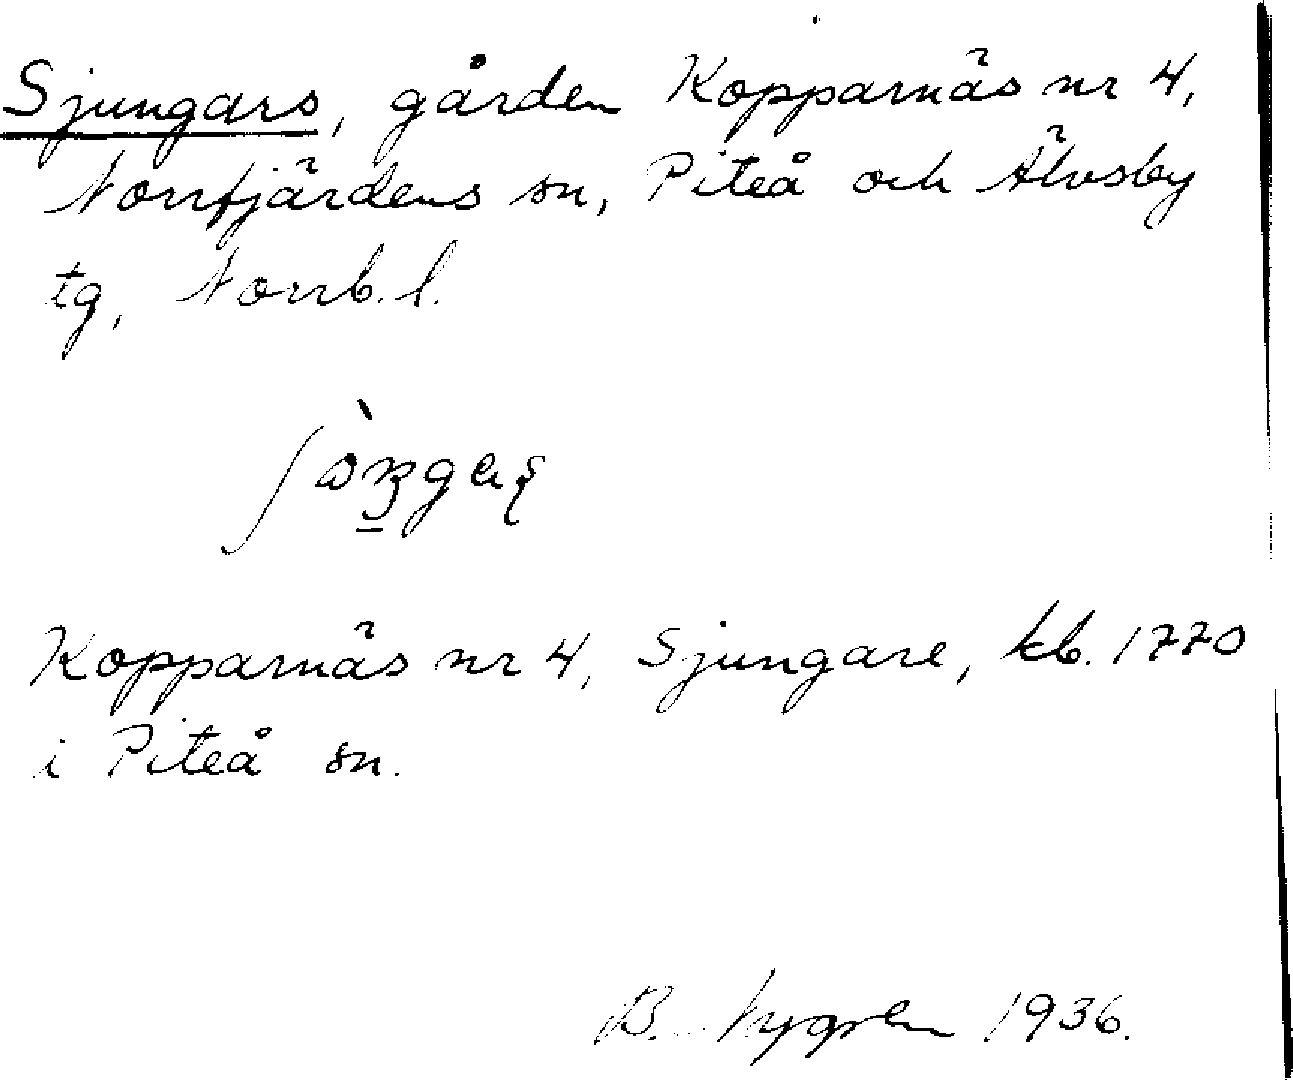 Sjungars, gården Kopparnäs nr 4,
Norrfjärdens sn, Piteå och Älvsby
tg, Norrb. l.
Kopparnäs nr 4, Sjungare, kb. 1770
i Piteå sn.
B. Nygren 1936.